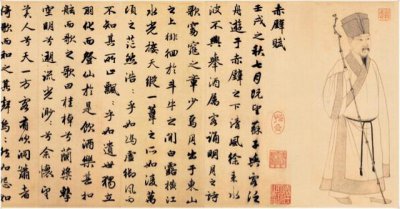 赤壁賦
壬戌之秋七月既望蘇子與客泛
舟遊于赤壁之下清風徐來水
波不興舉酒屬客誦明月之詩
歌窈窕之章少焉月出于東山
之上徘徊於斗牛之間白露橫江
水光接天縱一葦之所如凌萬
頃之茫然浩:乎如馮虛御風而
不知其所止飄:乎如遺世獨立
羽化而登仙於是飲酒樂甚扣
舷而歌之歌曰桂棹兮蘭槳擊
空明兮泝流光渺:兮余懷望
美人兮天一方客有吹洞簫者
倚歌而和之其聲嗚:然如怨如